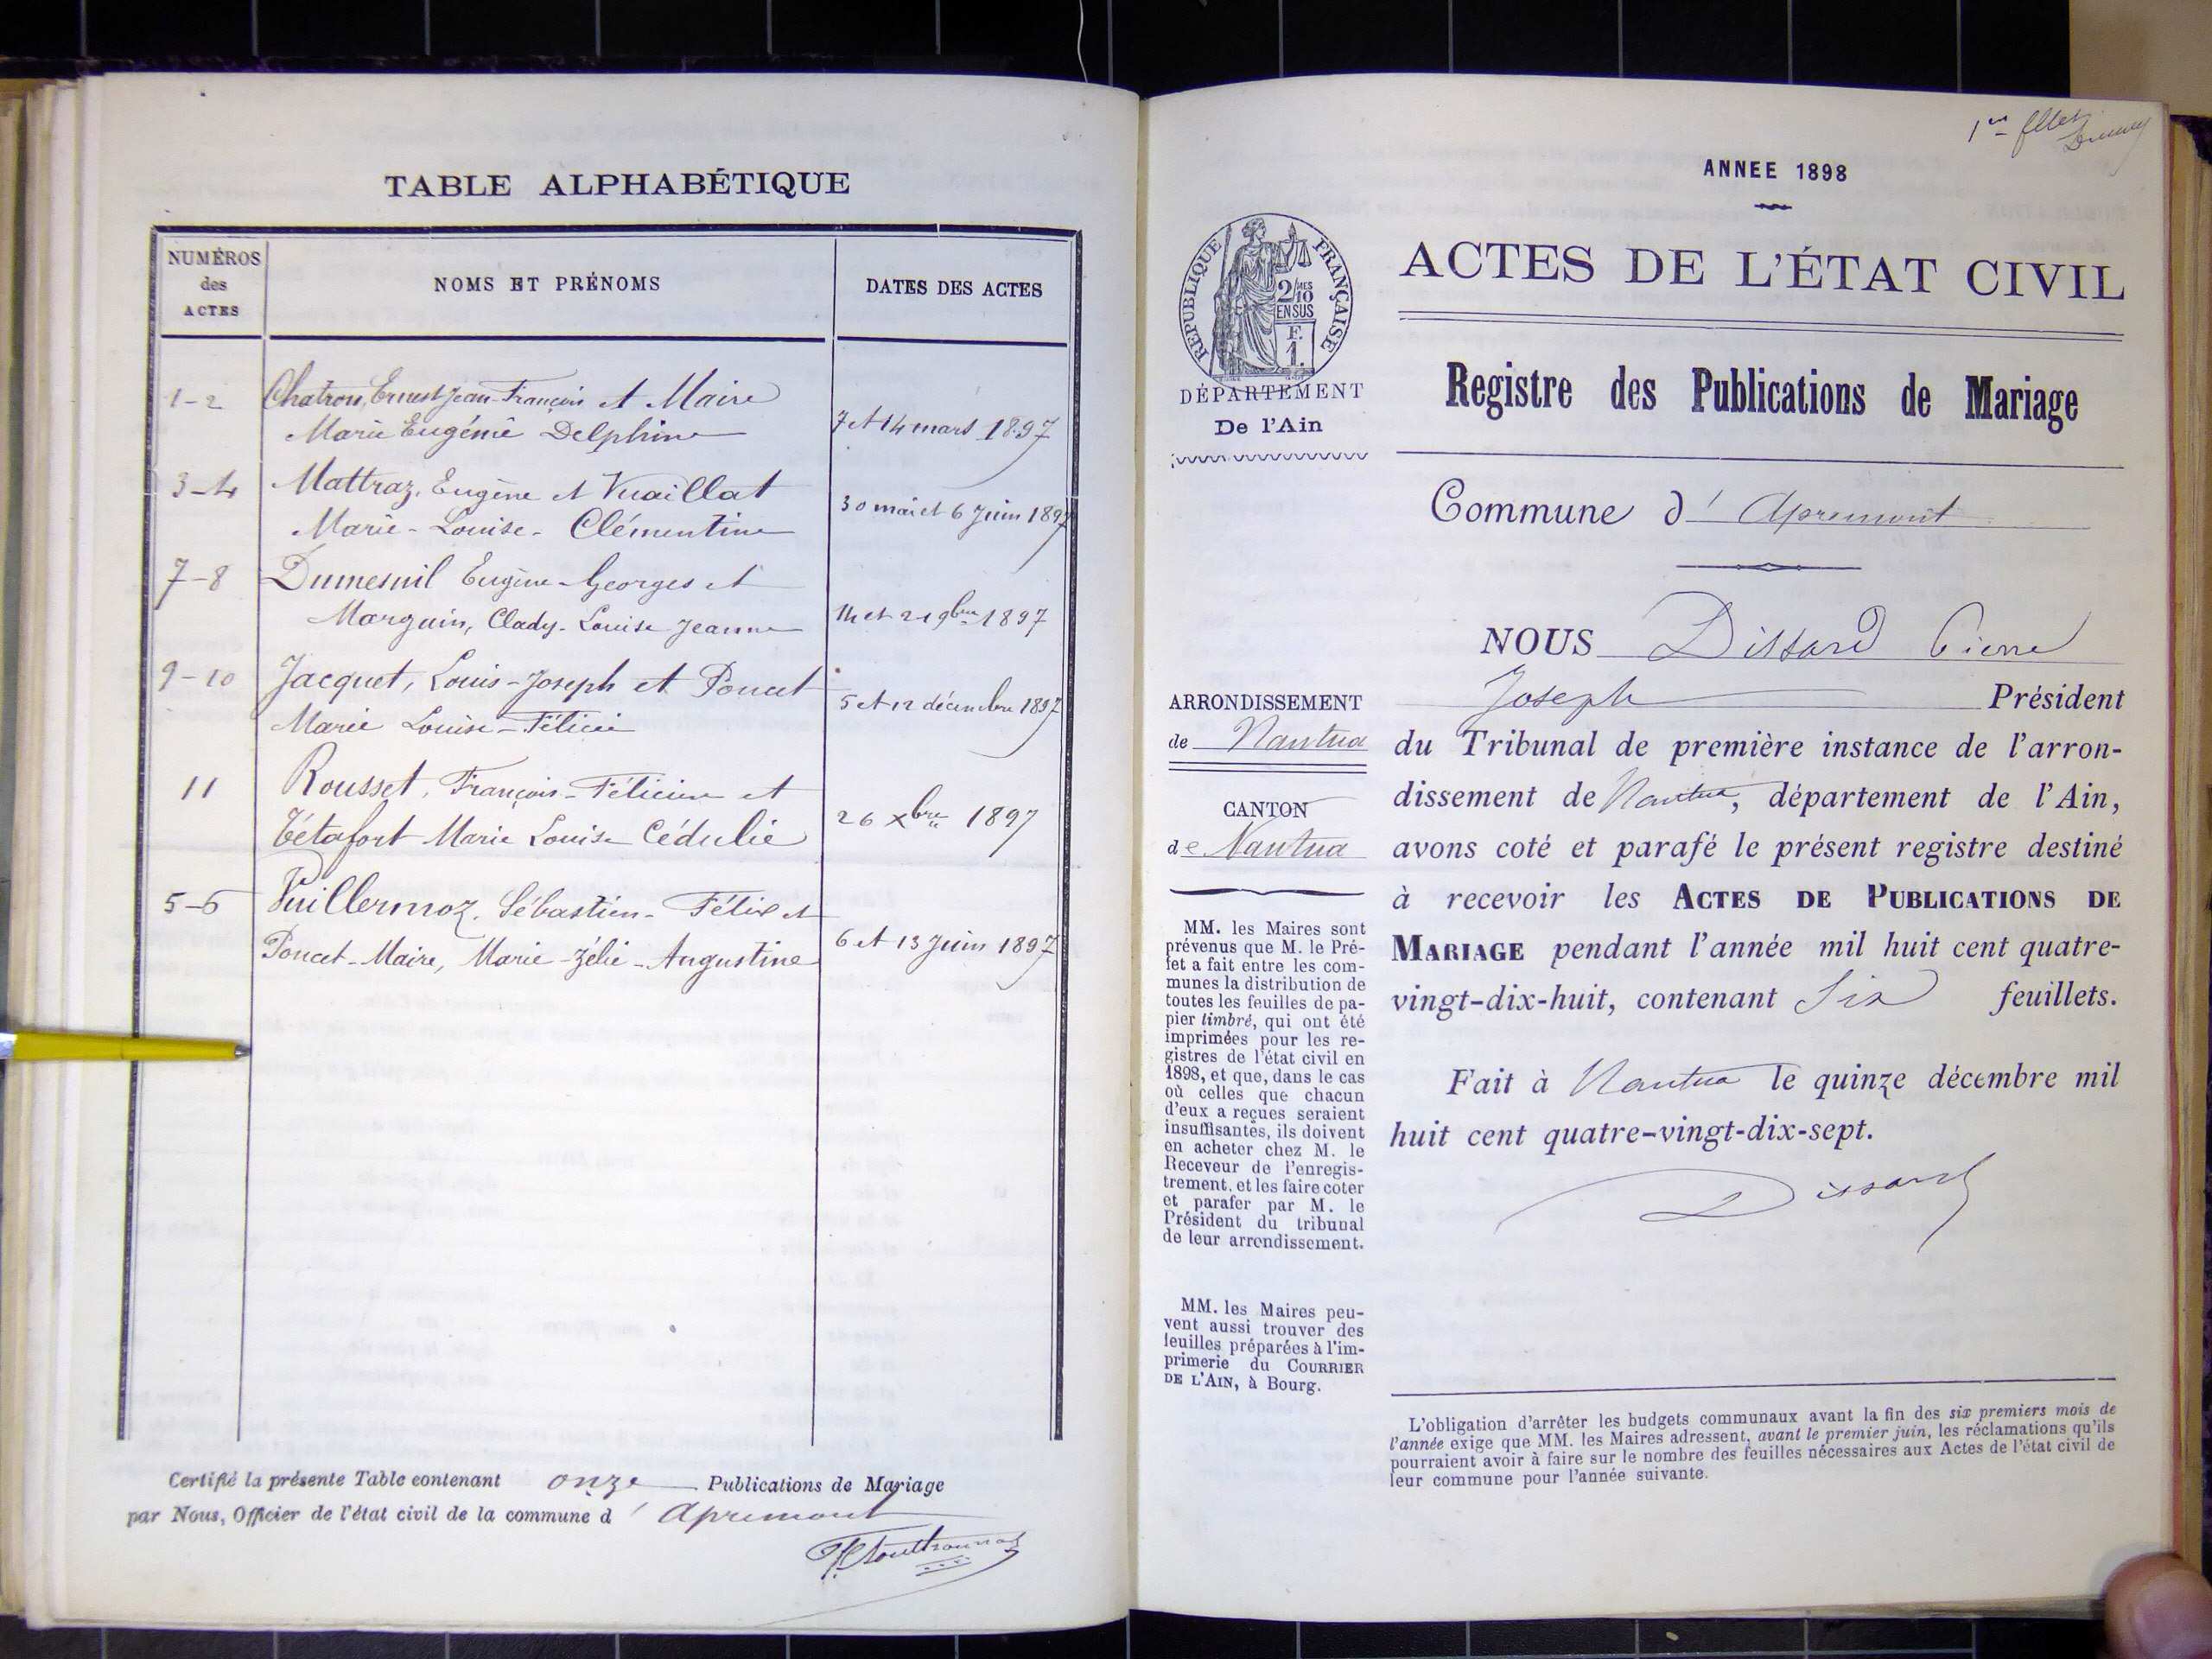 TABLE ALPHABÉTIQUE
NUMÉROS
des
ACTES
NOMS ET PRÉNOMS
DATES DES ACTES
1-2
Chatron, Ernest Jean-François et Maire
Marie Eugénie Delphine
7 et 14 mars 1897
3-4
Mattraz, Eugène et Vuaillat
Marie-Louise-Clémentine
30 mai et 6 Juin 1897
7-8
Dumesnil Eugène-Georges et
Marguin, Clady-Louise Jeanne
14 et 21 9bre 1897
9-10
Jacquet, Louis-Joseph et Poncet
Marie Louise-Félicie
5 et 12 décembre 1897
11
Rousset, François-Félicien et
Tétafort Marie Louise Cédulie
26 Xbre 1897
5-6
Vuillermoz, Sébastien-Félix et
Poncet-Maire, Marie-Zélie-Augustine
6 et 13 Juin 1897
Certifié la présente Table contenant onze Publications de Mariage
par Nous, Officier de l'état civil de la commune d' Apremont
ANNEE 1898
RÉPUBLIQUE FRANÇAISE
2/10 MES
EN SUS
F.
1.
ACTES DE L'ÉTAT CIVIL
DÉPARTEMENT
De l'Ain
Registre des Publications de Mariage
Commune d' Apremont
NOUS Dissard Pierre
Joseph Président
ARRONDISSEMENT
de Nantua
du Tribunal de première instance de l'arron-
dissement de Nantua, département de l'Ain,
CANTON
de Nantua
avons coté et parafé le présent registre destiné
à recevoir les ACTES DE PUBLICATIONS DE
MARIAGE pendant l'année mil huit cent quatre-
vingt-dix-huit, contenant Six feuillets.
Fait à Nantua le quinze décembre mil
huit cent quatre-vingt-dix-sept.
Dissard
MM. les Maires sont
prévenus que M. le Pré-
fet a fait entre les com-
munes la distribution de
toutes les feuilles de pa-
pier timbré, qui ont été
imprimées pour les re-
gistres de l'état civil en
1898, et que, dans le cas
où celles que chacun
d'eux a reçues seraient
insuffisantes, ils doivent
en acheter chez M. le
Receveur de l'enregis-
trement, et les faire coter
et parafer par M. le
Président du tribunal
de leur arrondissement.
MM. les Maires peu-
vent aussi trouver des
feuilles préparées à l'im-
primerie du COURRIER
DE L'AIN, à Bourg.
L'obligation d'arrêter les budgets communaux avant la fin des six premiers mois de
l'année exige que MM. les Maires adressent, avant le premier juin, les réclamations qu'ils
pourraient avoir à faire sur le nombre des feuilles nécessaires aux Actes de l'état civil de
leur commune pour l'année suivante.